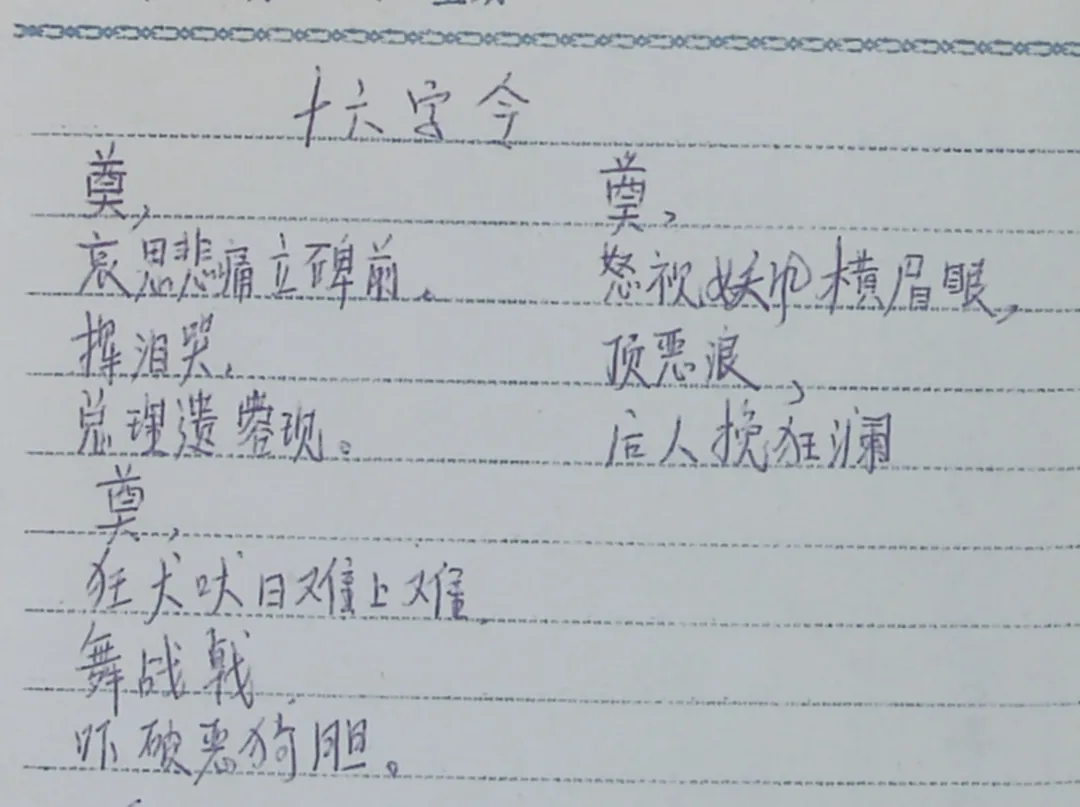 十六字令
奠,
哀思悲痛立碑前.
挥泪哭.
总理遗容现。
奠,
狂犬吠日难上难
舞战戟
吓破恶狗胆。
奠,
怒视妖巾横眉眼,
顶恶浪,
后人挽狂澜